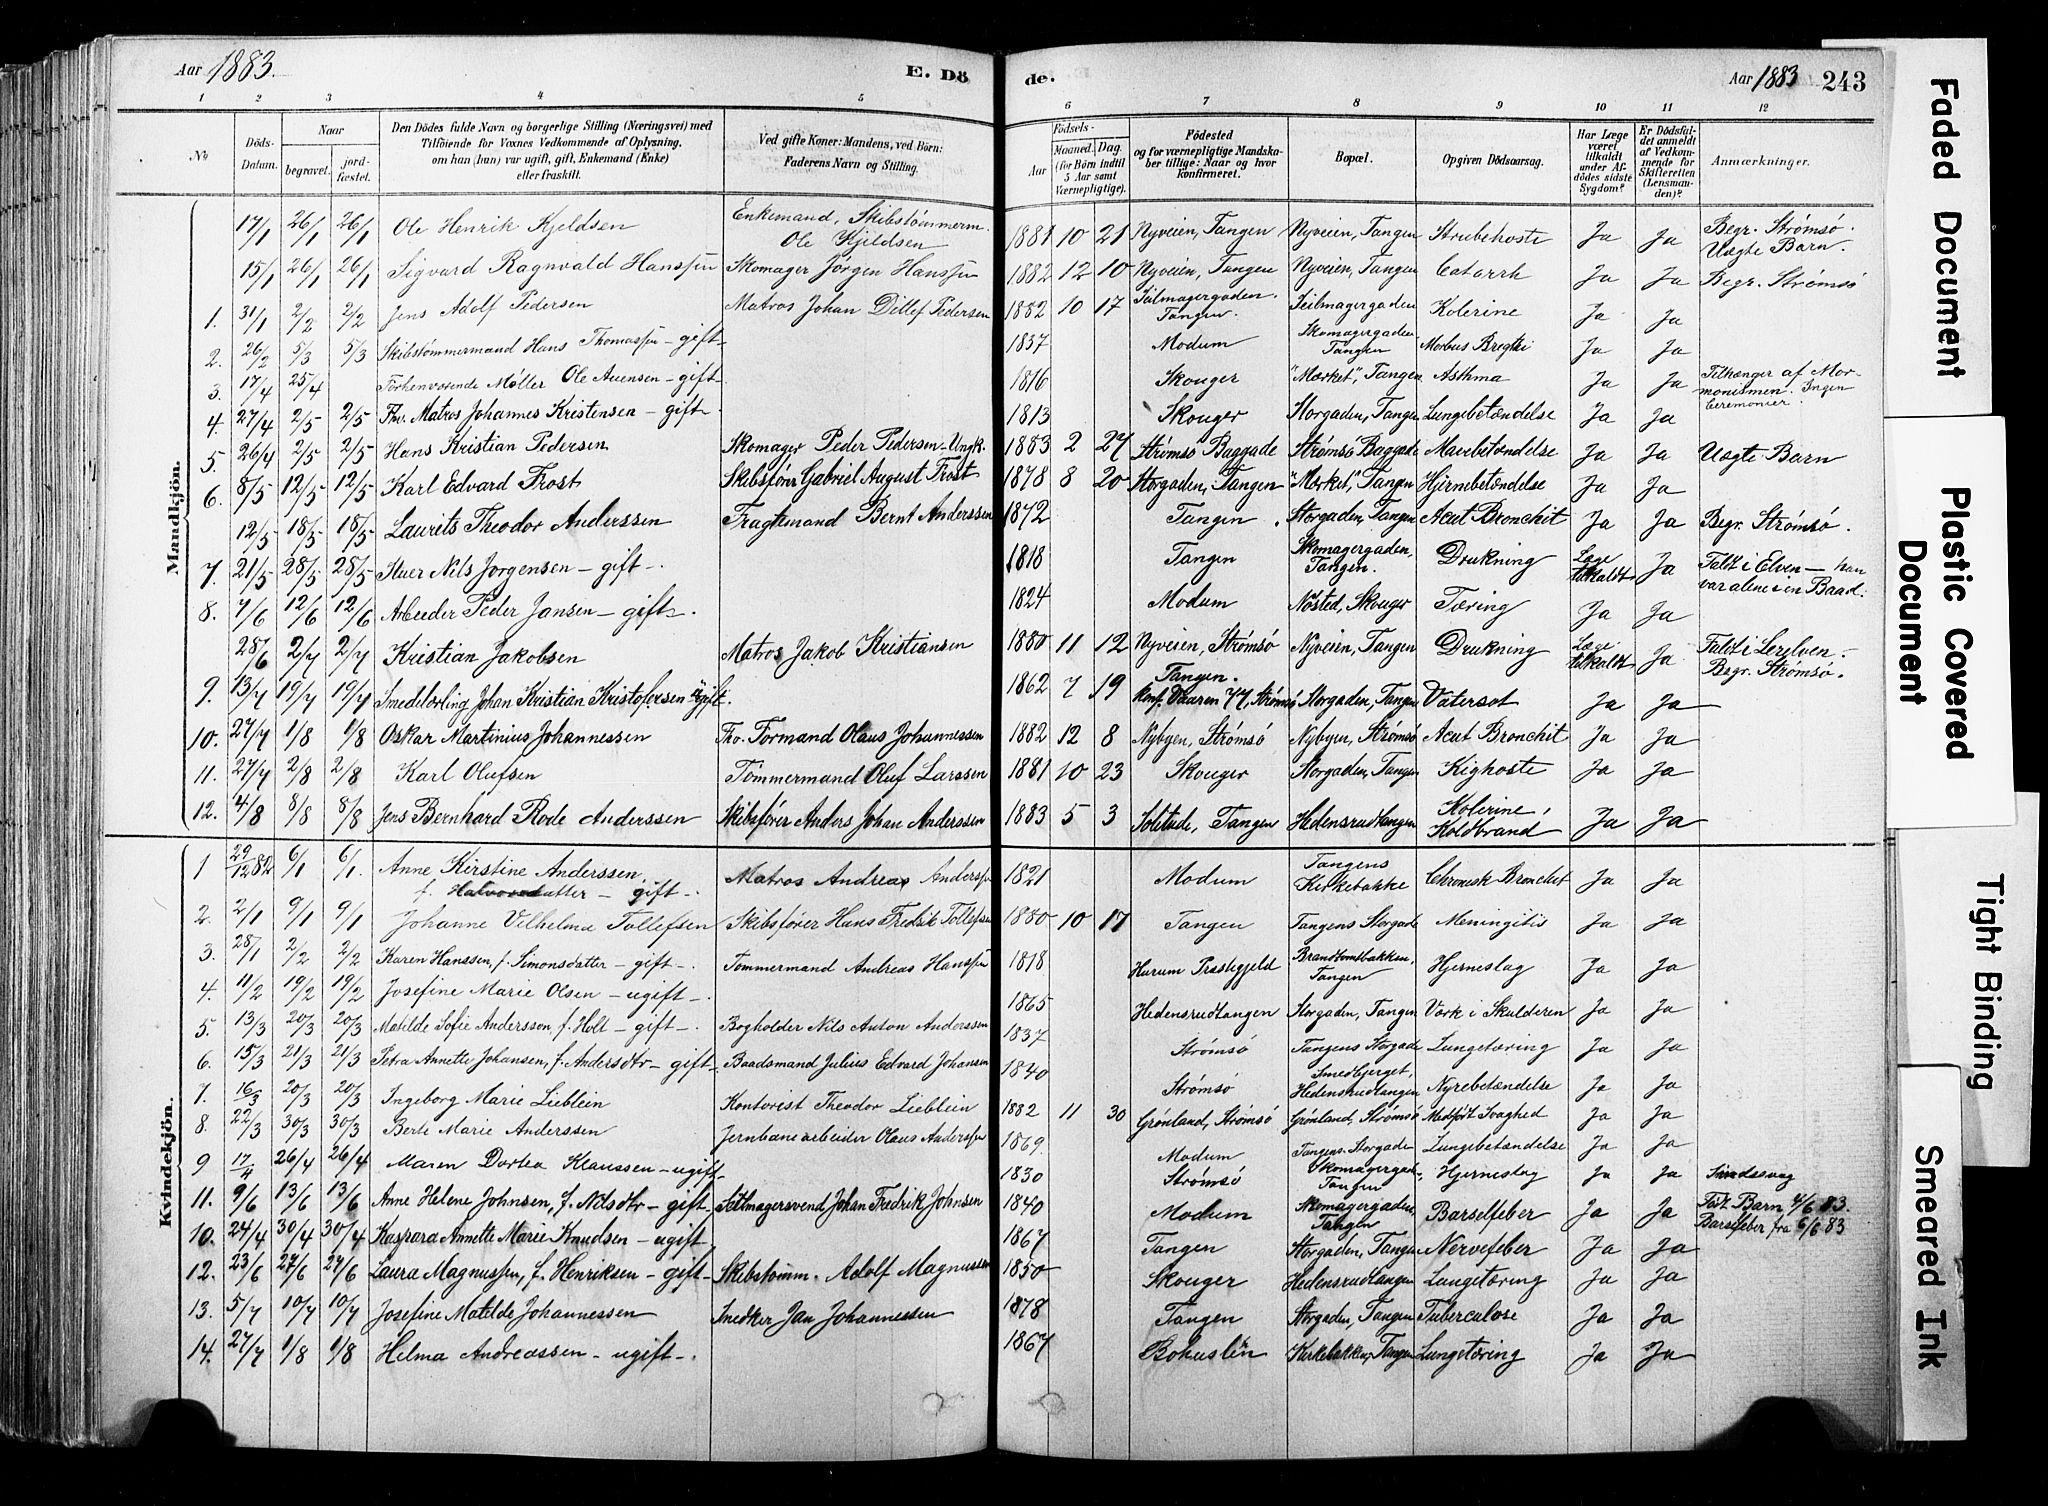 Aar 1883.
E. Dö
de.
Aar 1883
243
1 2 3 4 5 6 7 8 9 10 11 12
No
Döds-Datum.
Naar
begravet.
jord-fæstet.
Den Dödes fulde Navn og borgerlige Stilling (Næringsvei) med Tilföiende for Voxnes Vedkommende af Oplysning, om han (hun) var ugift, gift, Enkemand (Enke) eller fraskilt.
Ved gifte Koner: Mandens, ved Börn: Faderens Navn og Stilling.
Födsels-
Aar
Maaned. Dag.
(for Börn indtil 5 Aar samt Værnepligtige).
Födested og for værnepligtige Mandskaber tillige: Naar og hvor Konfirmeret.
Bopæl.
Opgiven Dödsaarsag.
Har Læge været tilkaldt under Afdödes sidste Sygdom?
Er Dödsfaldet anmeldt af Vedkommende for Skifteretten (Lensmanden)?
Anmærkninger.
Mandkjön.
17/1 26/1 26/1 Ole Henrik Kjeldsen Enkemand, Skibstømmerm. Ole Kjeldsen 1881 10 21 Nyveien, Tangen Nyveien, Tangen Strubehoste Ja Ja Begr. Strømsø. Uægte Barn.
15/1 26/1 26/1 Sigvard Ragnvald Hanssen Skomager Jørgen Hanssen 1882 12 10 Nyveien, Tangen Nyveien, Tangen Catarrh Ja Ja Begr. Strømsø
1. 31/1 2/2 2/2 Jens Adolf Pedersen Matros Johan Ditlef Pedersen 1882 10 17 Seilmagergaden. Tangen. Seilmagergaden Kolerine Ja Ja
2. 26/2 5/3 5/3 Skibstømmermand Hans Thomassen - gift - 1837 Modum Skomagergaden Tangen Morbus Brigthi Ja Ja
3. 17/4 25/4 Forhenværende Møller Ole Auensen - gift - 1816 Skouger "Mærket", Tangen Asthma Ja Ja Tilhænger af Mormonismen. Ingen Ceremonier.
4. 27/4 2/5 2/5 Fhv. Matros Johannes Kristensen - gift - 1813 Skouger Storgaden, Tangen Lungebetændelse Ja Ja
5. 26/4 2/5 2/5 Hans Kristian Pedersen Skomager Peder Pedersen - Ungk. 1883 2 27 Strømsø Baggade Strømsø Baggade Mavebetændelse Ja Ja Uægte Barn
6. 8/5 12/5 12/5 Karl Edvard Frost Skibsfører Gabriel August Frost 1878 8 20 Storgaden, Tangen "Mærket", Tangen Hjernebetændelse Ja Ja
12/5 18/5 18/5 Laurits Theodor Anderssen Fragtemand Bernt Anderssen 1872 Tangen. Storgaden, Tangen Acut Bronchit Ja Ja Begr. Strømsø.
7. 21/5 28/5 28/5 Stuer Nils Jørgensen - gift -. 1818 Tangen Skomagergaden, Tangen. Drukning Læge tilkaldt Ja Faldt i Elven - han var alene i en Baad.
8. 7/6 12/6 12/6 Arbeider Peder Jansen - gift -. 1824 Modum Nøsted, Skouger Tæring Ja Ja
28/6 2/7 2/7 Kristian Jakobsen Matros Jakob Kristiansen 1880 11 12 Nyveien, Strømsø Nyveien, Tangen Drukning Læge tilkaldt Ja Faldt i Lerelven - Begr. Strømsø.
9. 13/7 19/7 19/7 Smedelærling Johan Kristian Kristofersen ugift. 1862 7 19 Tangen. Konf. Vaaren 77, Strømsø Storgaden, Tangen Vatersot Ja Ja
10. 27/7 1/8 1/8 Oskar Martinius Johannessen Fhv. Formand Olaus Johannessen 1882 12 8 Nybyen, Strømsø Nybyen, Strømsø Acut Bronchit Ja Ja
11. 27/7 2/8 2/8 Karl Olufsen Tømmermand Oluf Larssen 1881 10 23 Skouger Storgaden, Tangen Kighoste Ja Ja
12. 4/8 8/8 8/8 Jens Bernhard Rode Anderssen Skibsfører Anders Johan Anderssen 1883 5 3 Solitude, Tangen Hedensrudtangen Kolerine, Koldbrand Ja Ja
Kvindekjön.
1 29/12 82 6/1 6/1. Anne Kirstine Anderssen, f. Halvorsdatter - gift -. Matros Andreas Anderssen 1821 Modum Tangens Kirkebakke Chronisk Bronchit Ja Ja
2. 2/1 9/1 9/1 Johanne Vilhelma Tollefsen Skibsfører Hans Fredrik Tollefsen 1880 10 17 Tangen Tangens Storgade Meningitis Ja Ja
3. 28/1 2/2 2/2 Karen Hanssen, f. Simonsdatter - gift -. Tømmermand Andreas Hanssen 1818 Hurum Præstegjeld Tangen Hjerneslag Ja Ja
4. 11/2 19/2 19/2 Josefine Marie Olsen - ugift -. 1865 Hedensrudtangen Storgaden, Tangen Værk i Skulderen Ja Ja
5. 13/3 20/3 20/3 Matilde Sofie Anderssen, f. Holt - gift -. Bogholder Nils Anton Anderssen 1837 Strømsø Tangens Storgade Lungetæring Ja Ja
6. 15/3 21/3 21/3 Petra Annette Johansen, f. Andersdtr - gift - Baadsmand Julius Edvard Johansen 1840 Strømsø Smedbjerget, Hedensrudtangen Nyrebetændelse Ja Ja
7. 16/3 20/3 20/3 Ingeborg Marie Lieblein Kontorist Theodor Lieblein 1882 11 30 Grønland, Strømsø Grønland, Strømsø Medfødt Svaghed Ja Ja
8. 22/3 30/3 30/3 Berte Marie Anderssen Jernbanearbeider Olaus Anderssen 1869. Modum Tangens Storgade Lungebetændelse Ja Ja
9 17/4 26/4 26/4 Maren Dortea Klaussen - ugift - 1830 Strømsø Skomagergaden, Tangen Hjerneslag Ja Ja Sindssvag
11. 9/6 13/6 13/6 Anne Helene Johnsen, f. Nilsdtr - gift - Seilmagersvend Johan Fredrik Johnsen 1840 Modum Skomagergaden, Tangen Barselfeber Ja Ja Født Barn 4/6 83. Barselfeber fra 6/6 83
10. 24/4 30/4 30/4 Kaspara Annette Marie Knudsen - ugift 1867 Tangen Storgaden, Tangen Nervefeber Ja Ja
12. 23/6 27/6 27/6 Laura Magnussen, f. Henriksen - gift - Skibstømm. Adolf Magnussen 1850 Skouger Hedensrudtangen Lungetæring Ja Ja
13. 5/7 10/7 10/7 Josefine Matilde Johannessen Snedker Jan Johannessen 1878 Tangen Storgaden, Tangen Tuberculose Ja Ja
14. 27/7 1/8 1/8 Helma Andreassen - ugift -. 1867 Bohuslën Kirkebakken, Tangen Lungetæring Ja Ja
Faded Document
Plastic Covered Document
Tight Binding
Smeared Ink